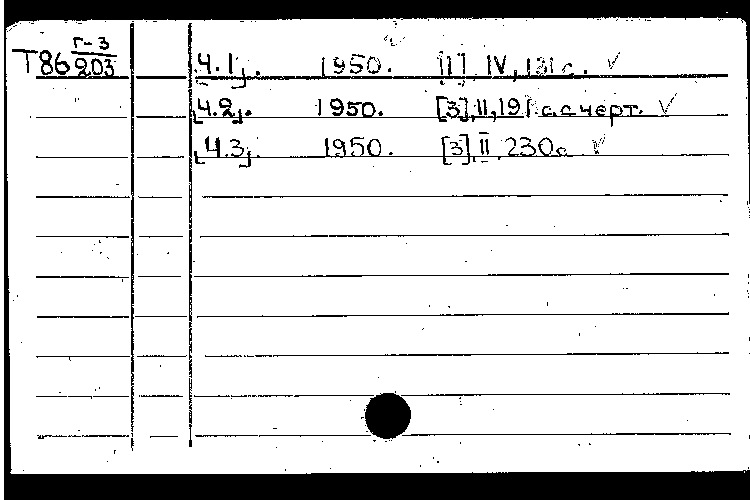 Т86 Г-3/203 [Ч.1]. 1950. [1], IV, 131 с. ✓
[Ч.2]. 1950. [3], II, 191 с. с черт. ✓
[Ч.3]. 1950. [3], II, 230 с ✓